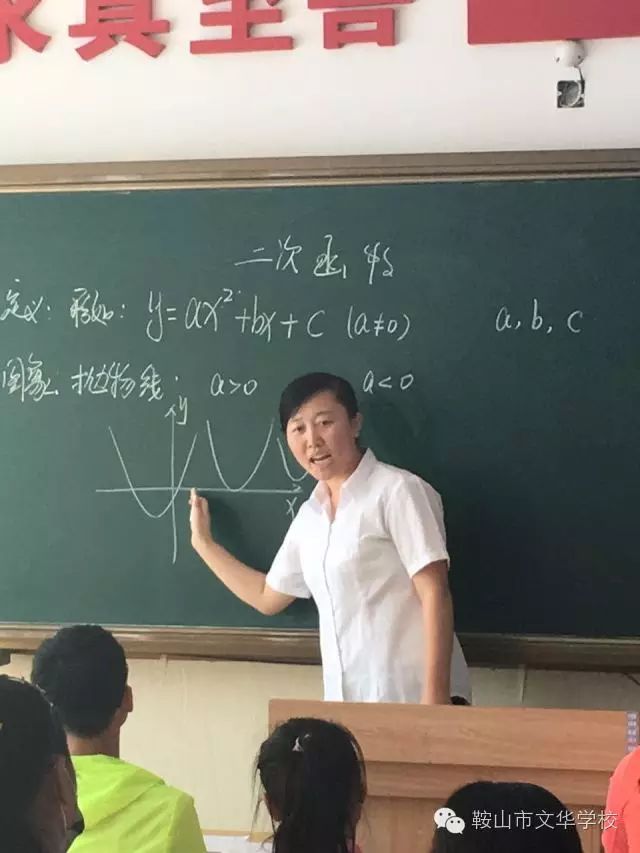 求真至善
二次函数
定义：形如：y=ax²+bx+c (a≠0) a, b, c
图象：抛物线： a>0 a<0
y
x
鞍山市文华学校